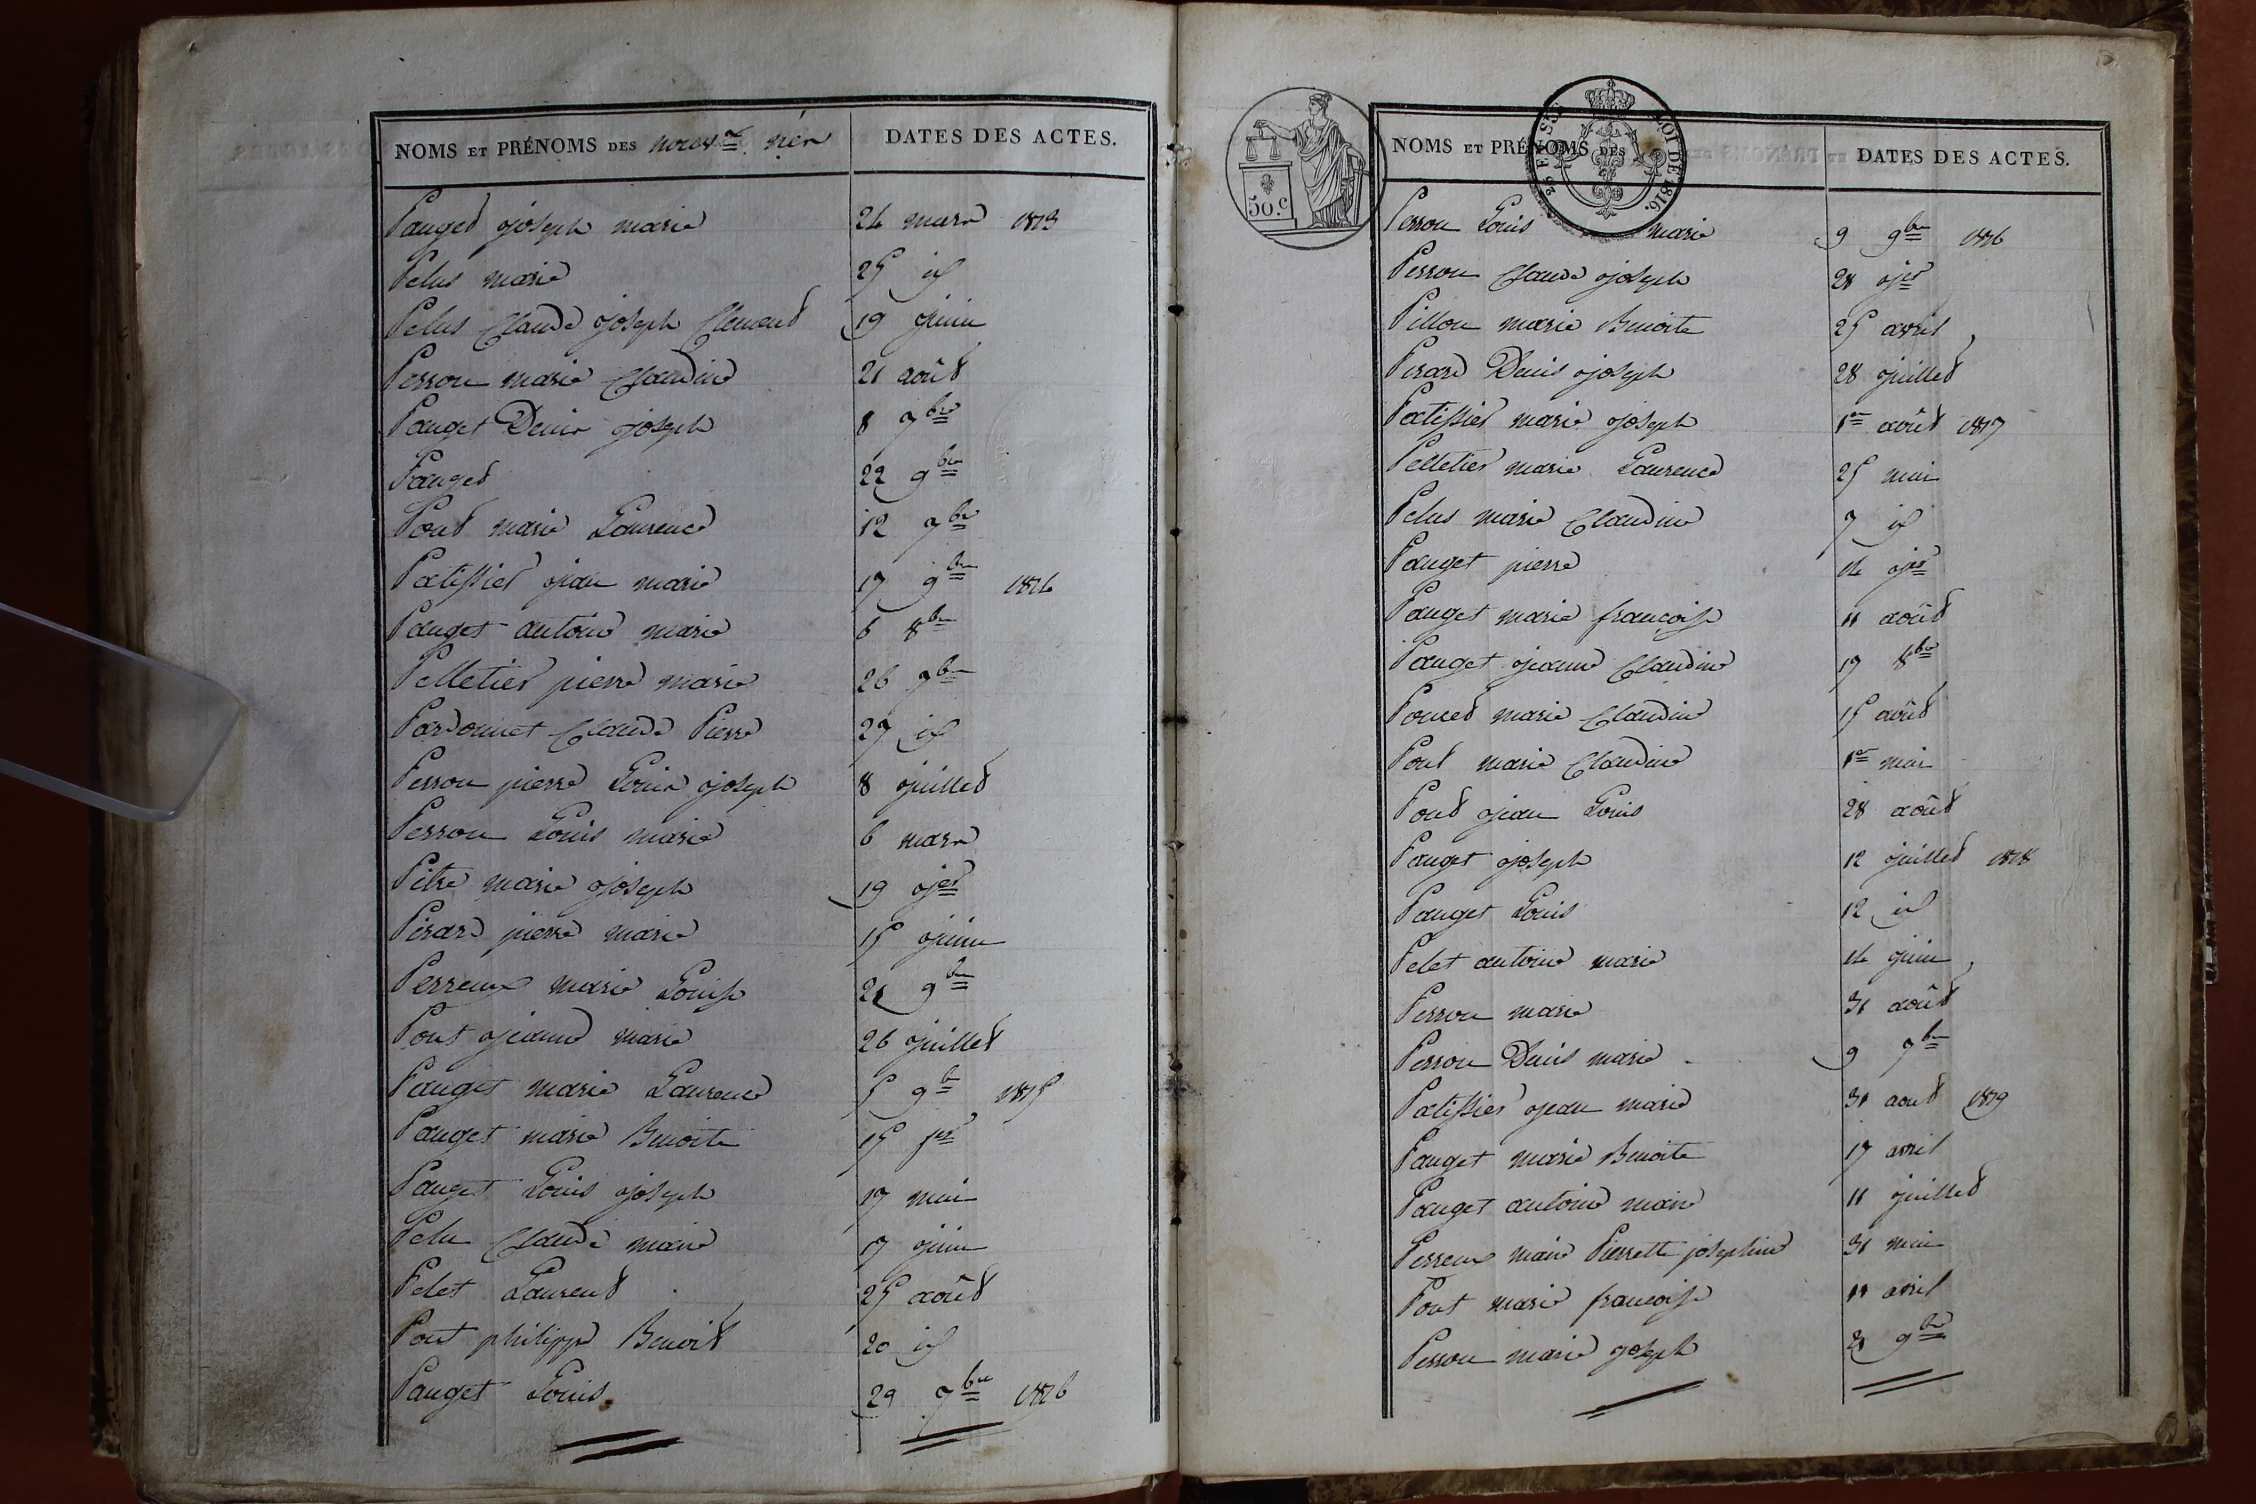 NOMS ET PRÉNOMS DES nouvx nés DATES DES ACTES.
Pauget joseph marie 24 mars 1813
Pelus marie 25 id
Pelus Claude joseph Clement 19 juin
Perron marie Claudine 21 août
Pauget Denis joseph 8 7bre
Pauget 22 9bre
Pont marie Laurence 12 7bre
Patissier jean marie 17 9bre 1814
Pauget antoine marie 6 8bre
Pelletier pierre marie 26 7bre
Pardonnet Claude Pierre 27 id
Perron pierre Louis joseph 8 juillet
Perron Louis marie 6 mars
Pitre marie joseph 19 jer
Pirard pierre marie 15 juin
Perreux marie Louise 21 9bre
Pont jeanne marie 26 juillet
Pauget marie Laurence 5 9bre 1815
Pauget marie Benoite 15
Pauget Louis joseph 17 mai
Pelu Claude marie 17 juin
Pelet Laurent 25 août
Pont philippe Benoit 20 id
Pauget Louis 29 7bre 1816
50.c
LOI DE 1816.
NOMS ET PRÉNOMS DES DATES DES ACTES.
Perron Louis marie 9 9bre 1816
Perron Claude joseph 28 jer
Pillon marie Benoite 25 avril
Pirard Denis joseph 28 juillet
Patissier marie joseph 1er août 1817
Pelletier marie Laurence 25 mai
Pelus marie Claudine 7 id
Pauget pierre 14 jer
Pauget marie françoise 11 août
Pauget jeanne Claudine 17 8bre
Poncet marie Claudine 15 août
Pont marie Claudine 1er mai
Pont jean Louis 28 août
Pauget joseph 12 juillet 1818
Pauget Louis 12 id
Pelet antoine marie 14 juin
Perron marie 31 août
Perron Denis marie 9 7bre
Patissier jean marie 31 aout 1819
Pauget marie Benoite 17 avril
Pauget antoine marie 11 juillet
Perreux marie Pierrette josephine 31 mai
Pont marie françoise 11 avril
Perron marie joseph 21 9bre